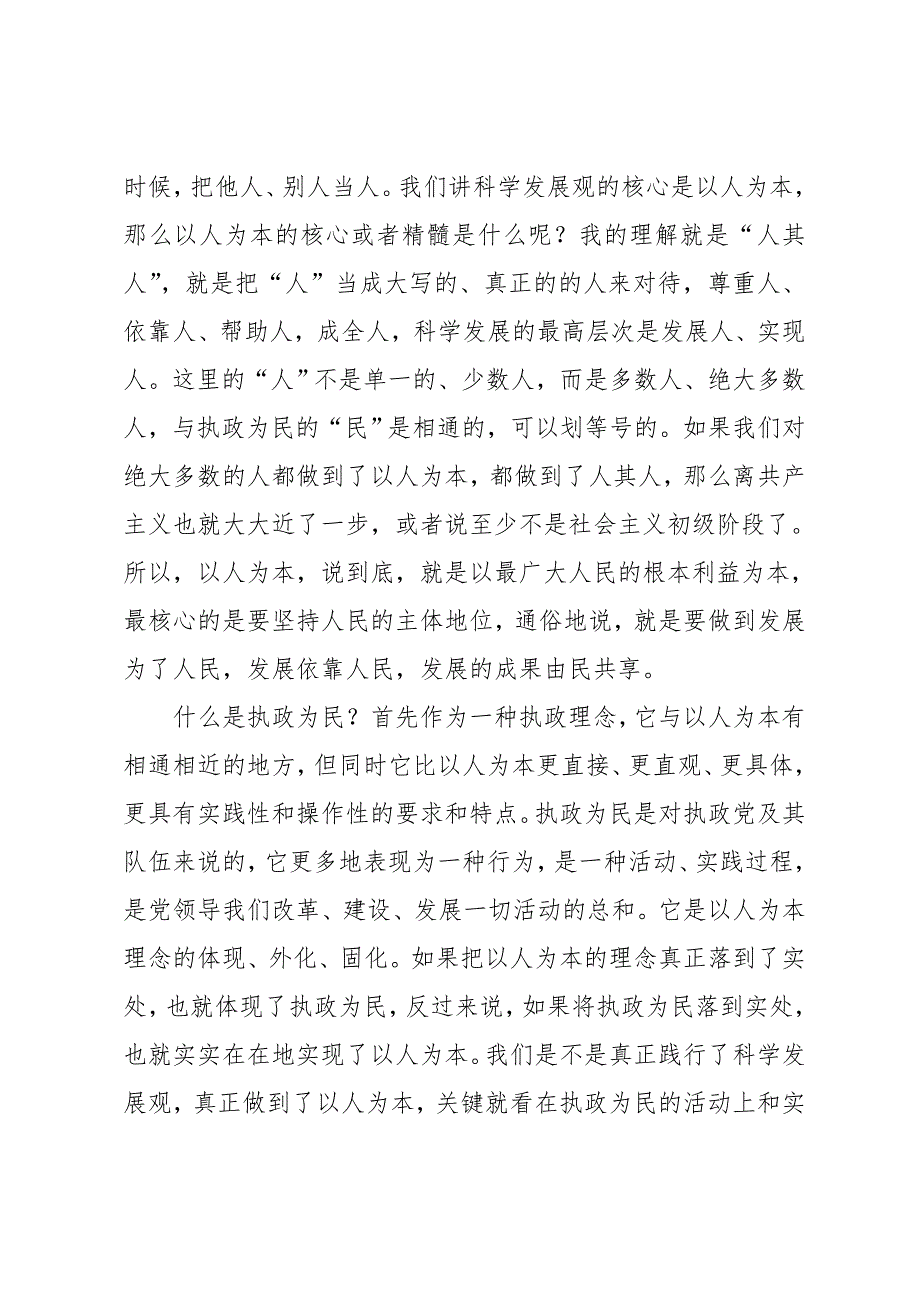 时候，把他人、别人当人。我们讲科学发展观的核心是以人为本，
那么以人为本的核心或者精髓是什么呢？我的理解就是“人其
人”，就是把“人”当成大写的、真正的的人来对待，尊重人、
依靠人、帮助人，成全人，科学发展的最高层次是发展人、实现
人。这里的“人”不是单一的、少数人，而是多数人、绝大多数
人，与执政为民的“民”是相通的，可以划等号的。如果我们对
绝大多数的人都做到了以人为本，都做到了人其人，那么离共产
主义也就大大近了一步，或者说至少不是社会主义初级阶段了。
所以，以人为本，说到底，就是以最广大人民的根本利益为本，
最核心的是要坚持人民的主体地位，通俗地说，就是要做到发展
为了人民，发展依靠人民，发展的成果由民共享。
什么是执政为民？首先作为一种执政理念，它与以人为本有
相通相近的地方，但同时它比以人为本更直接、更直观、更具体，
更具有实践性和操作性的要求和特点。执政为民是对执政党及其
队伍来说的，它更多地表现为一种行为，是一种活动、实践过程，
是党领导我们改革、建设、发展一切活动的总和。它是以人为本
理念的体现、外化、固化。如果把以人为本的理念真正落到了实
处，也就体现了执政为民，反过来说，如果将执政为民落到实处，
也就实实在在地实现了以人为本。我们是不是真正践行了科学发
展观，真正做到了以人为本，关键就看在执政为民的活动上和实